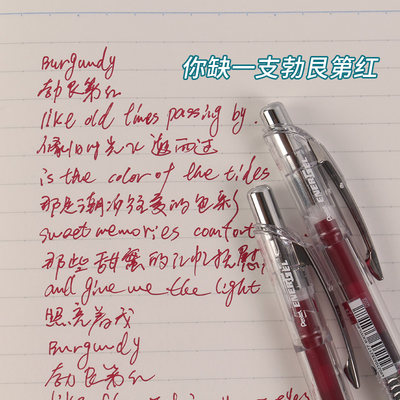 你缺一支勃艮第红
Burgundy
勃艮第红
like old times passing by.
像旧时光
is the color of the tides
那是潮汐钟爱的色彩
sweet memories comfort
那些甜蜜的记忆抚慰
and give me the light
照亮着我
Burgundy
勃艮第红
ENERGEL
ENERGEL